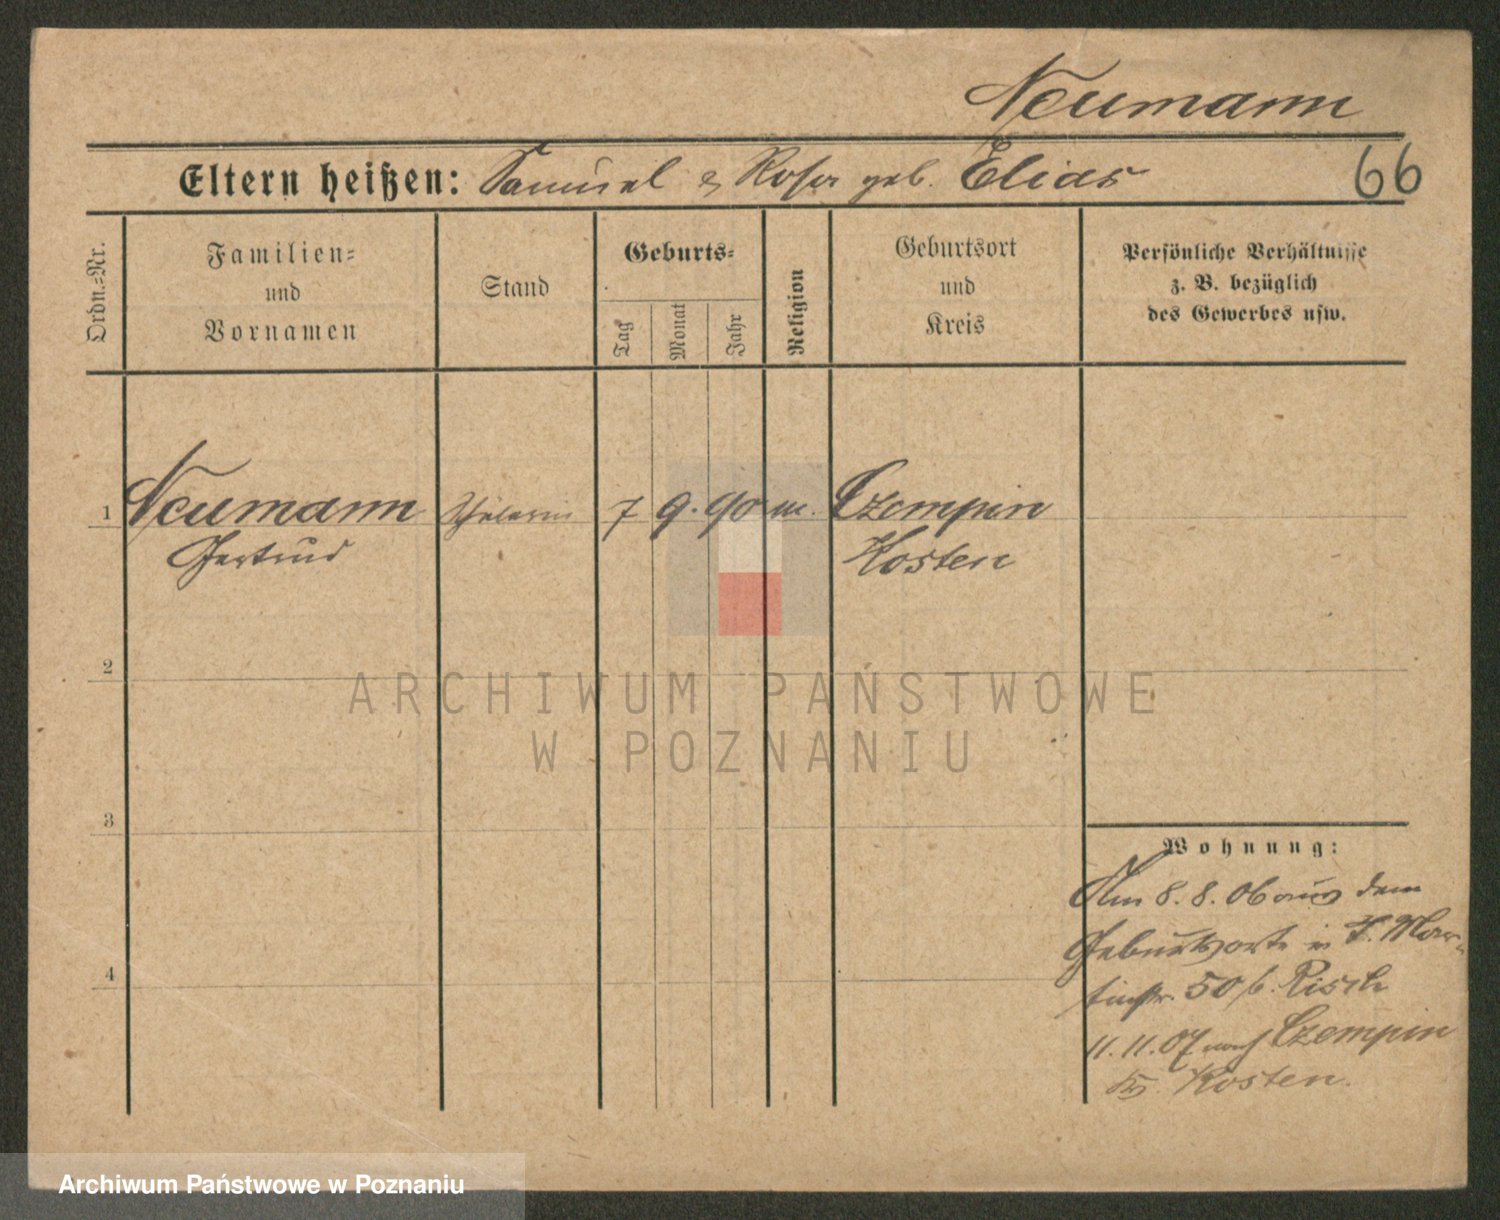 Neumann
Eltern heißen: Samuel & Rosa geb. Elias
66
Ordn.=Nr.
Familien=
und
Vornamen
Stand
Geburts=
Tag
Monat
Jahr
Religion
Geburtsort
und
Kreis
Persönliche Verhältnisse
z. B. bezüglich
des Gewerbes usw.
1 Neumann Schülerin 7 9. 90 m. Czempin
Gertrud Kosten
2
ARCHIWUM PAŃSTWOWE
W POZNANIU
3
Wohnung:
Am 8. 8. 06 aus dem
Geburtsorte n. St. Mar-
tinstr. 50 b. Risch
4
11. 11. 07 nach Czempin
Kr. Kosten.
Archiwum Państwowe w Poznaniu